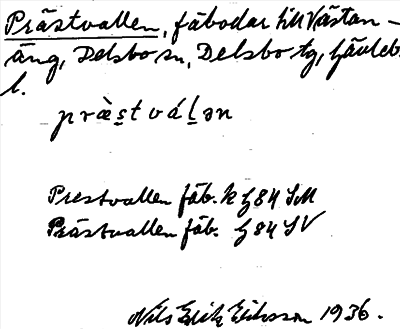 Prästvallen, fäbodar till Västan-
äng, Delsbo sn, Delsbo tg, Gävleb.
l.
præ̀s̱tváḻən
Prestvallen fäb. k G84 SM
Prästvallen fäb. G84 SV
Nils Erik Eriksson 1936.